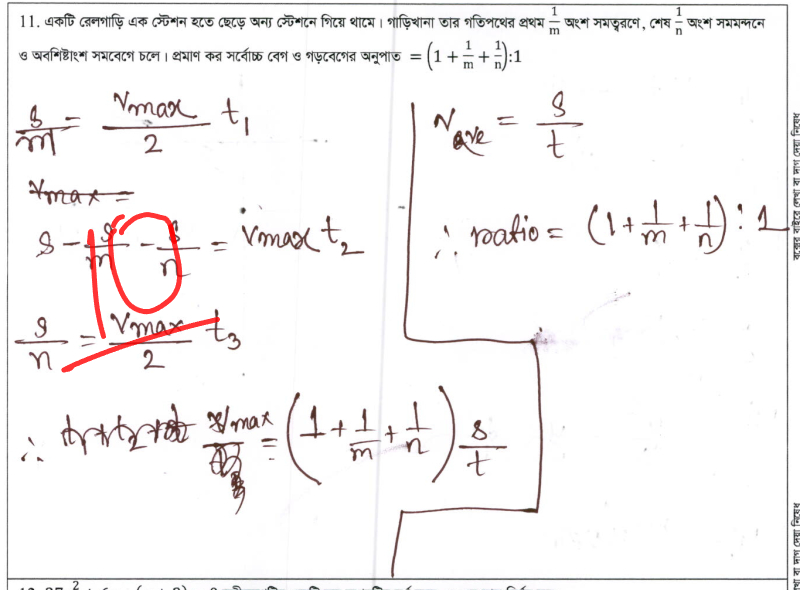 11. একটি রেলগাড়ি এক স্টেশন হতে ছেড়ে অন্য স্টেশনে গিয়ে থামে। গাড়িখানা তার গতিপথের প্রথম 1/m অংশ সমত্বরণে, শেষ 1/n অংশ সমমন্দনে
ও অবশিষ্টাংশ সমবেগে চলে। প্রমাণ কর সর্বোচ্চ বেগ ও গড়বেগের অনুপাত = (1 + 1/m + 1/n):1
s/m = vmax/2 t₁
vmax =
s - s/m - s/n = vmax t₂
s/n = vmax/2 t₃
∴ vmax = (1 + 1/m + 1/n) s/t
vave = s/t
∴ ratio = (1 + 1/m + 1/n) : 1